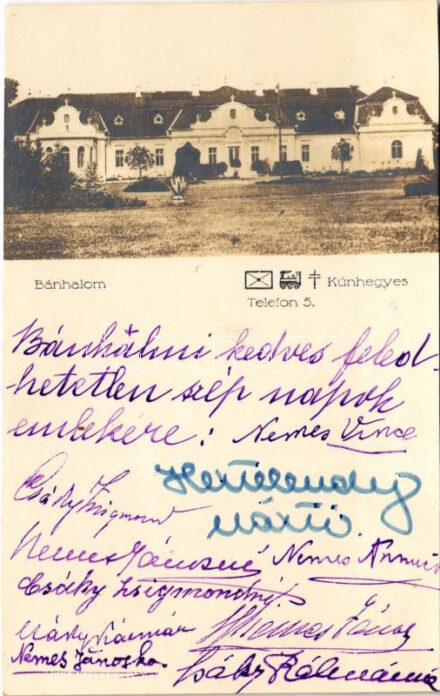 Bánhalom
Kúnhegyes
Telefon 5.
Bánhalmi kedves feled-
hetetlen szép napok
emlékére: Nemes Vince
Hertelendy
Csáky Zsigmond
Nemes Jánosné Nemes Annus
Csáky Zsigmondné
Kálmán
Nemes János
Nemes Jánoska
Csáky Kálmánné